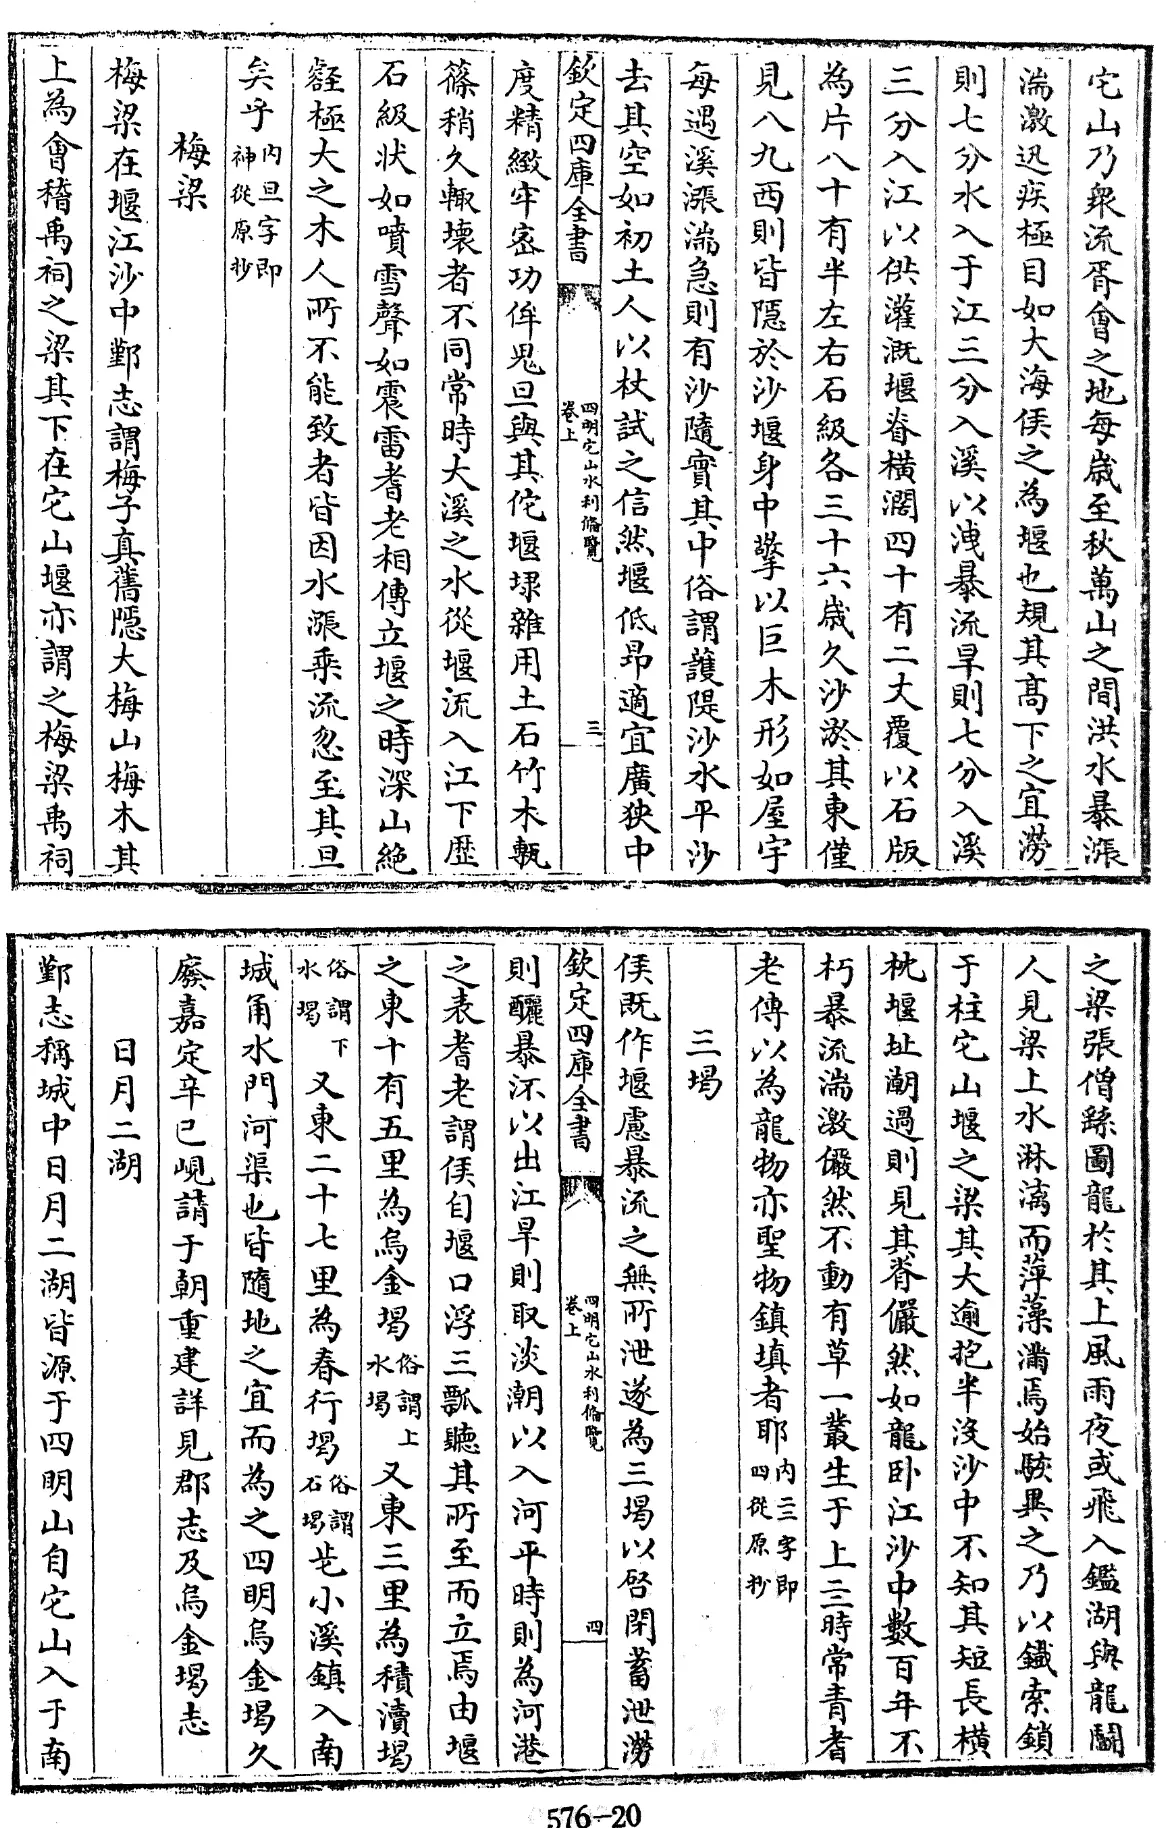 它山乃衆流胥會之地每嵗至秋萬山之間洪水暴漲
湍激迅疾極目如大海侯之為堰也規其髙下之宜澇
則七分水入于江三分入溪以洩暴流旱則七分入溪
三分入江以供灌溉堰脊横濶四十有二丈覆以石版
為片八十有半左右石級各三十六嵗久沙淤其東僅
見八九西則皆隱於沙堰身中擎以巨木形如屋宇
每遇溪漲湍急則有沙隨實其中俗謂䕶隄沙水平沙
去其空如初土人以杖試之信然堰低昻適宜廣狹中
欽定四庫全書
四明它山水利備覽
卷上
三
度精緻牢宻功侔鬼亖與其佗堰埭雜用土石竹木甎
篠稍久輙壊者不同常時大溪之水從堰流入江下歴
石級狀如噴雪聲如震雷耆老相傳立堰之時深山絶
壑極大之木人所不能致者皆因水漲乗流忽至其亖
矣乎内亖字即神從原抄
梅梁
梅梁在堰江沙中鄞志謂梅子真舊隱大梅山梅木其
上為會稽禹祠之梁其下在它山堰亦謂之梅梁禹祠
之梁張僧繇圖龍於其上風雨夜或飛入鑑湖與龍鬭
人見梁上水淋漓而萍藻滿焉始駭異之乃以鐵索鎖
于柱它山堰之梁其大逾抱半沒沙中不知其短長横
枕堰址潮過則見其脊儼然如龍卧江沙中數百年不
朽暴流湍激儼然不動有草一叢生于上亖時常青耆
老傳以為龍物亦聖物鎮填者耶内亖字即四從原抄
三堨
侯既作堰慮暴流之無所泄遂為三堨以啓閉蓄泄澇
欽定四庫全書
四明它山水利備覽
卷上
四
則釃暴流以出江旱則取淡潮以入河平時則為河港
之表耆老謂侯自堰口浮三瓢聽其所至而立焉由堰
之東十有五里為烏金堨俗謂上水堨又東三里為積瀆堨
俗謂下水堨又東二十七里為春行堨俗謂石堨是小溪鎮入南
城甬水門河渠也皆隨地之宜而為之四明烏金堨久
廢嘉定辛巳峴請于朝重建詳見郡志及烏金堨志
日月二湖
鄞志稱城中日月二湖皆源于四明山自它山入于南
576-20